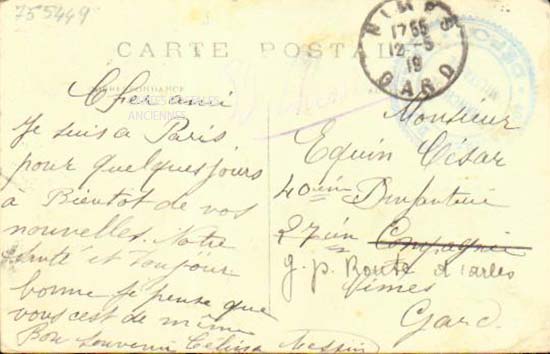 755449
CARTE POSTALE
CORRESPONDANCE
CARTES POSTALES
ANCIENNES
NIMES
1765
12-5
19
GARD
Cher ami
Je suis à Paris
pour quelques jours
à Bientot de vos
nouvelles. Notre
santé et toujour
bonne je pense que
vous c'est de même
Bon Souvenir
Monsieur
Equin César
40em Infanterie
27em Compagnie
g.p. Route d'arles
Nimes
Gard.